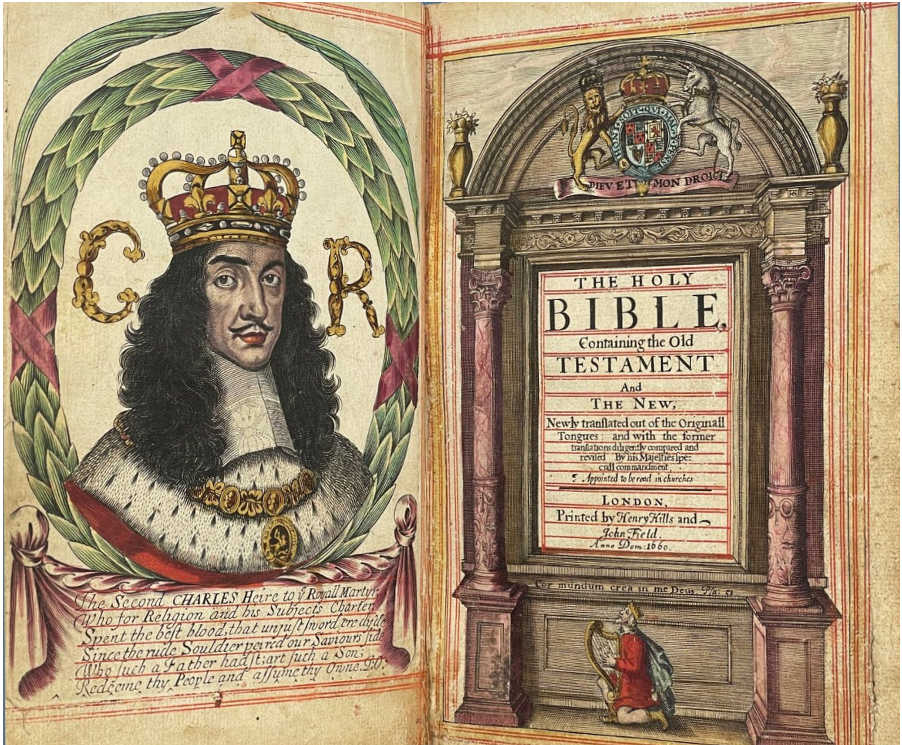 C R
The Second CHARLES Heire to yͤ Royall Martyr:
Who for Religion and his Subjects Charter,
Spent the beſt blood, that unjuſt ſword ere dy'de
Since the rude Souldier peirc'd our Saviours ſide
Who ſuch a Father had'ſt; art ſuch a Son;
Redeeme thy People and aſſume thy Owne.
DIEV ET MON DROIT
THE HOLY
BIBLE,
Containing the Old
TESTAMENT
And
THE NEW,
Newly tranſlated out of the Originall
Tongues: and with the former
tranſlations diligently compared and
reviſed By his Majeſties ſpe-
ciall commandment
Appointed to be read in churches
LONDON,
Printed by Henry Hills and
John Field.
Anno Dom: 1660.
Cor mundum crea in me Deus Psa: 51